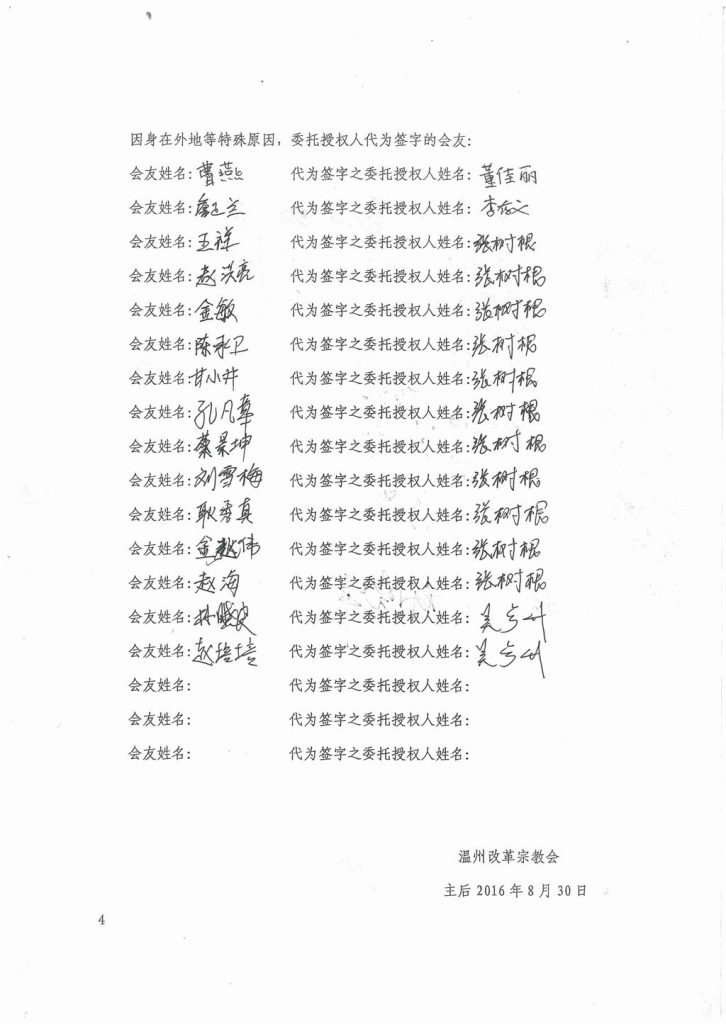 因身在外地等特殊原因，委托授权人代为签字的会友：
会友姓名：曹燕 代为签字之委托授权人姓名：董佳丽
会友姓名： 代为签字之委托授权人姓名：李
会友姓名：王禄 代为签字之委托授权人姓名：张树根
会友姓名：赵洪亮 代为签字之委托授权人姓名：张树根
会友姓名：金敏 代为签字之委托授权人姓名：张树根
会友姓名：陈承卫 代为签字之委托授权人姓名：张树根
会友姓名：甘小井 代为签字之委托授权人姓名：张树根
会友姓名：孔凡章 代为签字之委托授权人姓名：张树根
会友姓名：蔡景坤 代为签字之委托授权人姓名：张树根
会友姓名：刘雪梅 代为签字之委托授权人姓名：张树根
会友姓名：耿秀真 代为签字之委托授权人姓名：张树根
会友姓名：金越伟 代为签字之委托授权人姓名：张树根
会友姓名：赵海 代为签字之委托授权人姓名：张树根
会友姓名：孙晓 代为签字之委托授权人姓名：吴
会友姓名：赵培培 代为签字之委托授权人姓名：吴
会友姓名： 代为签字之委托授权人姓名：
会友姓名： 代为签字之委托授权人姓名：
会友姓名： 代为签字之委托授权人姓名：
温州改革宗教会
主后 2016 年 8 月 30 日
4